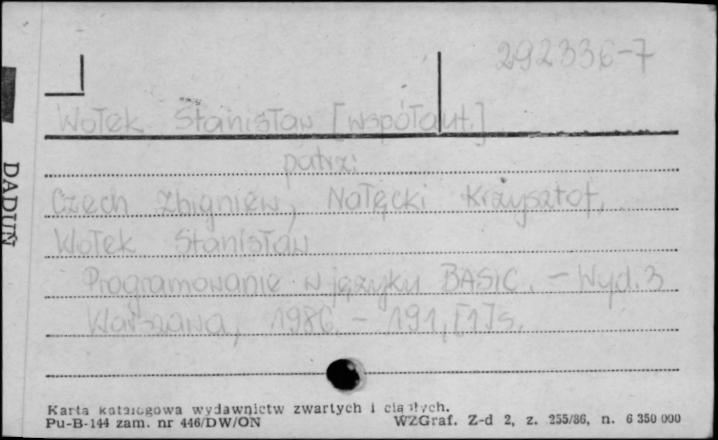 292336-7
Wołek Stanisław [współaut.]
patrz:
Czech Zbigniew, Nałęcki Krzysztof,
Wołek Stanisław
Programowanie w języku BASIC. - Wyd. 3
Warszawa, 1986. - 191, [1] s.
DADUŃ
Karta katalogowa wydawnictw zwartych i ciągłych.
Pu-B-144 zam. nr 446/DW/ON WZGraf. Z-d 2, z. 255/86, n. 6 350 000